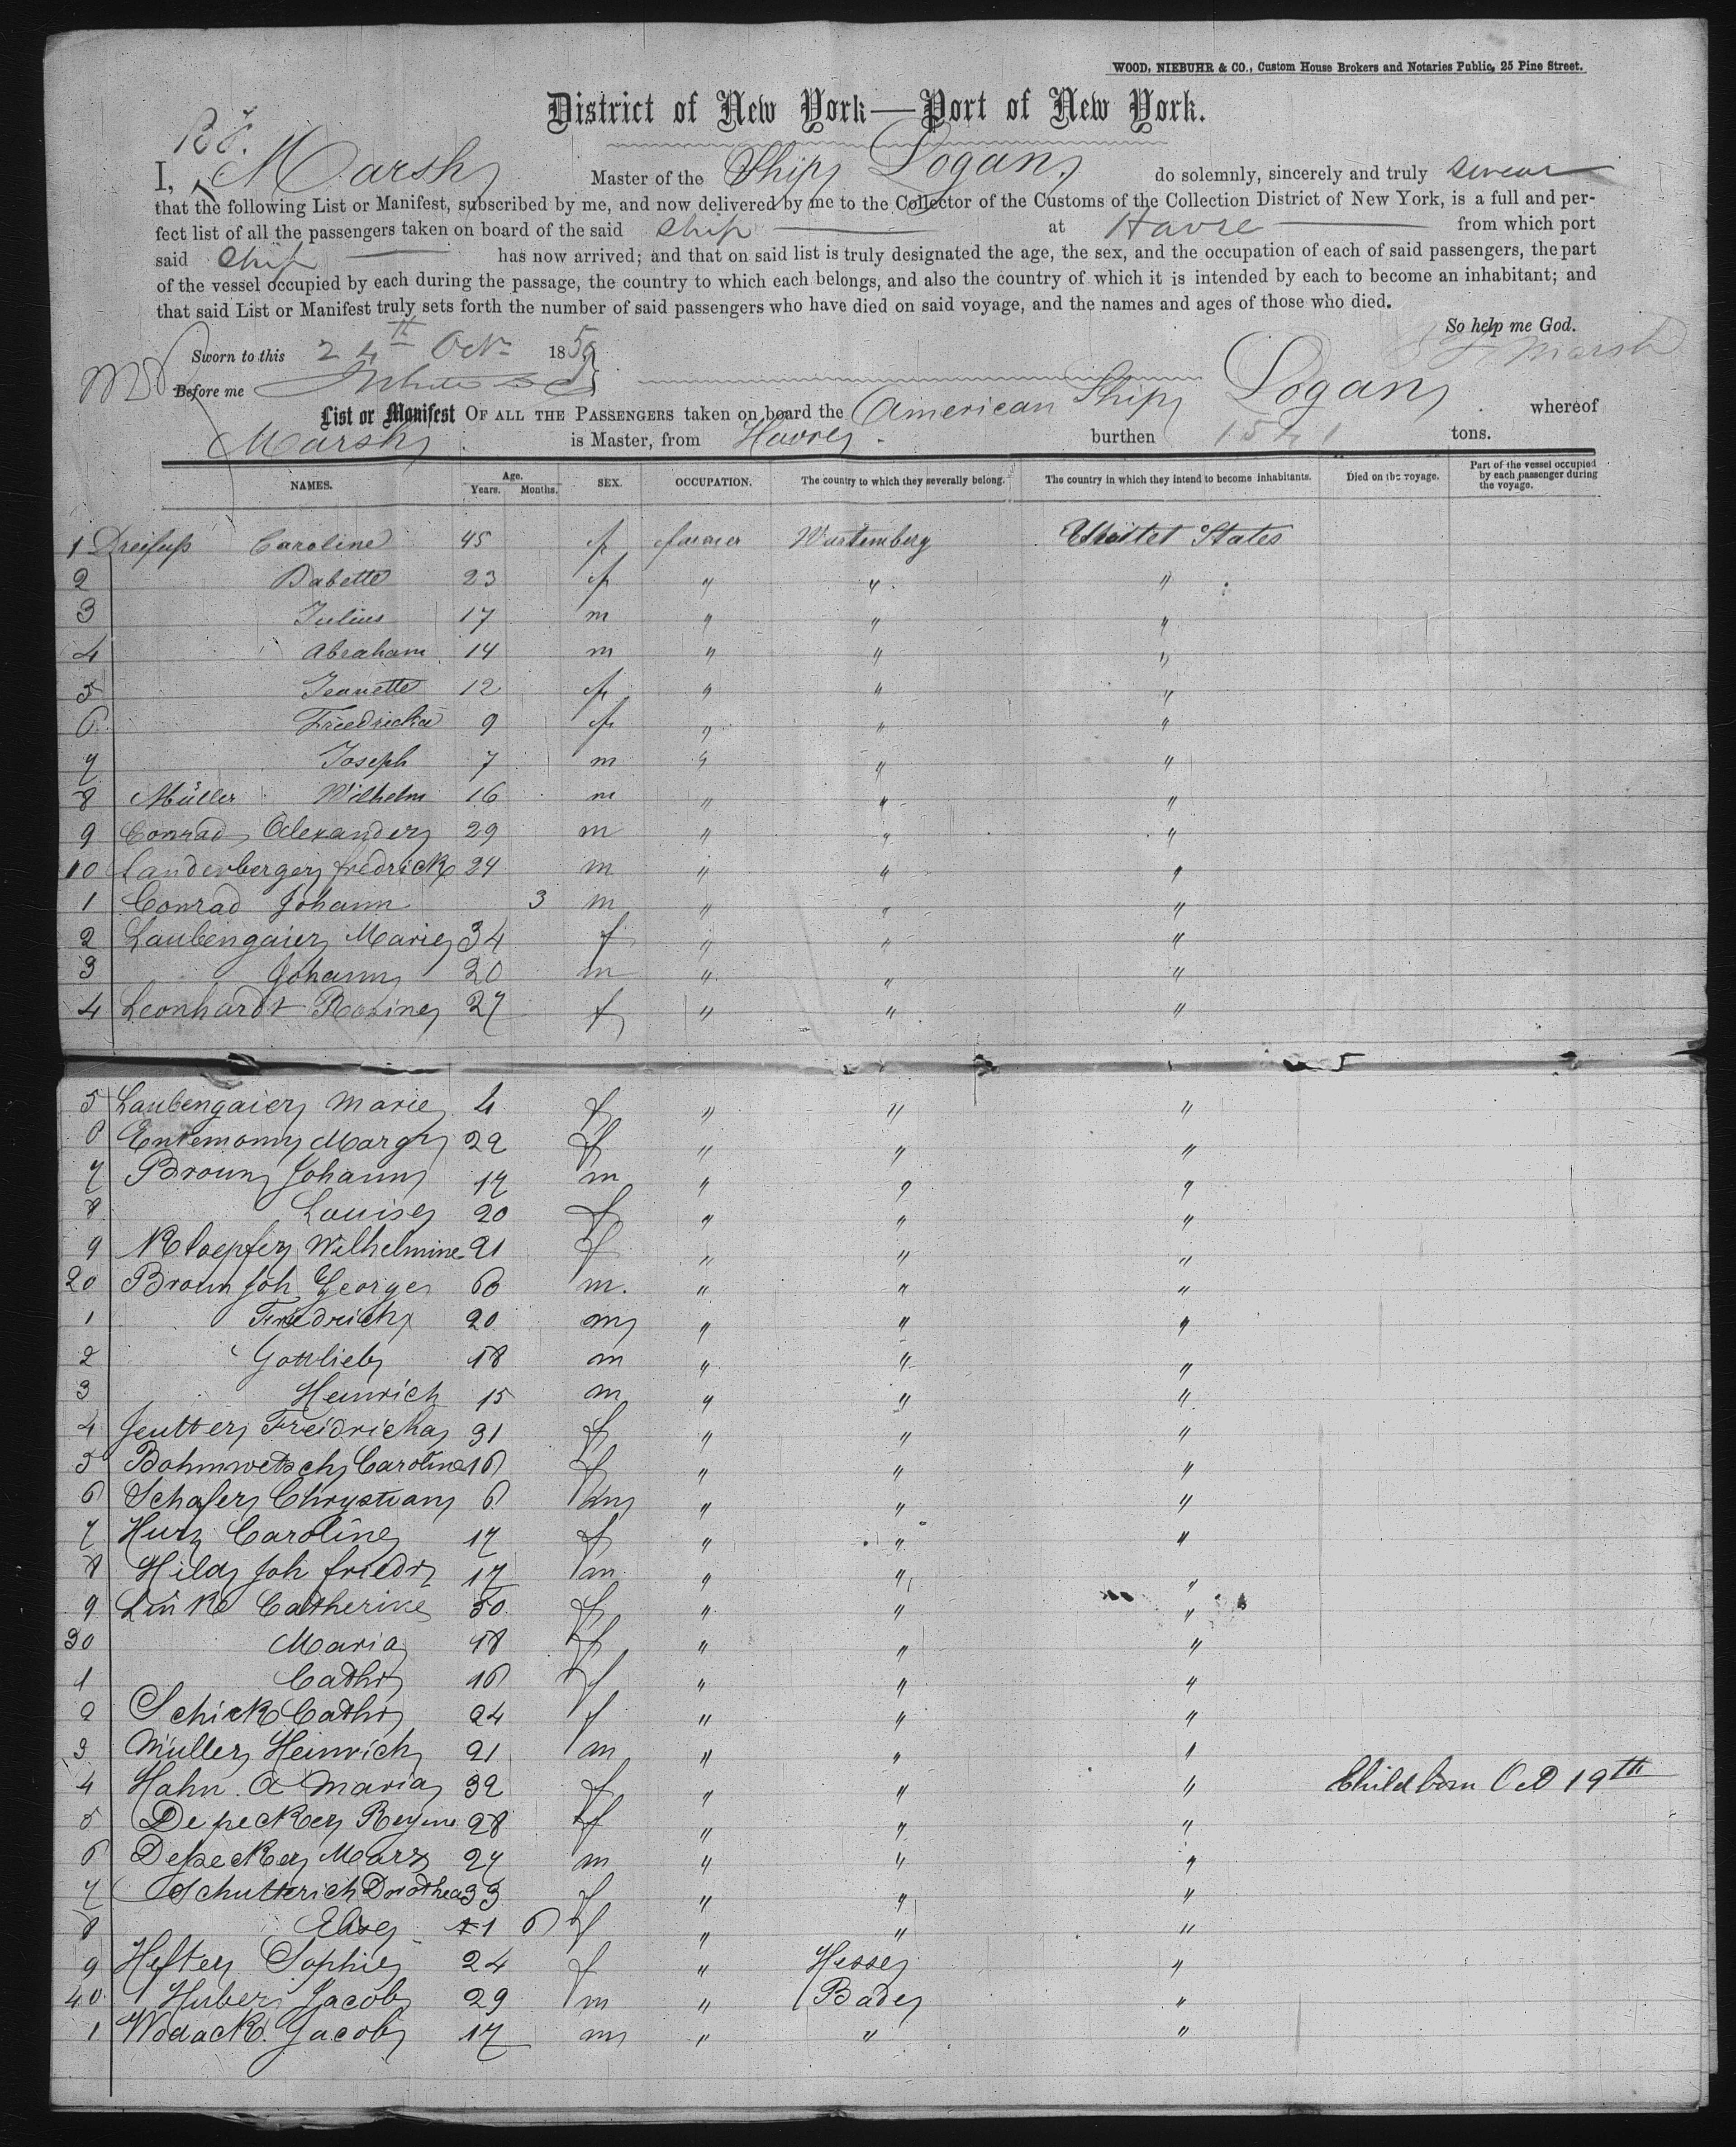 WOOD, NIEBUHR & CO., Custom House Brokers and Notaries Public, 25 Pine Street.
District of New York—Port of New York.
I, Marsh Master of the Ship Logan do solemnly, sincerely and truly swear
that the following List or Manifest, subscribed by me, and now delivered by me to the Collector of the Customs of the Collection District of New York, is a full and per-
fect list of all the passengers taken on board of the said Ship at Havre from which port
said Ship has now arrived; and that on said list is truly designated the age, the sex, and the occupation of each of said passengers, the part
of the vessel occupied by each during the passage, the country to which each belongs, and also the country of which it is intended by each to become an inhabitant; and
that said List or Manifest truly sets forth the number of said passengers who have died on said voyage, and the names and ages of those who died.
So help me God.
Sworn to this 24th Oct 185 Marsh
Before me
List or Manifest OF ALL THE PASSENGERS taken on board the American Ship Logan whereof
Marsh is Master, from Havre burthen tons.
NAMES. Age. Years. Months. SEX. OCCUPATION. The country to which they severally belong. The country in which they intend to become inhabitants. Died on the voyage. Part of the vessel occupied by each passenger during the voyage.
1 Dreifuß Caroline 45 f farmer Wurtemberg States
2 Babette 23 f " " "
3 Julius 17 m " " "
4 Abraham 14 m " " "
5 Jeanette 12 f " " "
6 Friedricke 9 f " " "
7 Joseph 7 m " " "
8 Müller Wilhelm 16 m " " "
9 Conrad Alexander 29 m " " "
10 Landenberger fredrick 24 m " " "
1 Conrad Johann 3 m " " "
2 Laubengaier Marie 34 f " " "
3 Johann 20 m " " "
4 Leonhardt Rosine 27 f " " "
5 Laubengaier Marie 4 f " " "
6 Margr 22 f " " "
7 Broun Johann 17 m " " "
8 Louise 20 f " " "
9 Kloepfer Wilhelmine 21 f " " "
20 Broun Joh George m. " " "
1 Friedrich 20 m " " "
2 Gottlieb 18 m " " "
3 Heinrich 15 m " " "
4 Jeutter Freidricka 31 f " " "
5 Bohmwetsch Caroline 16 f " " "
6 Schafer Chrystian 6 m " " "
7 Hurz Caroline 17 f " " "
8 Hild Joh friedr 17 m " " "
9 Link Catherine 50 f " " "
30 Maria 18 f " " "
1 Cathr 16 f " " "
2 Schick Cathr 24 f " " "
3 Müller Heinrich 21 m " " "
4 Hahn A Maria 32 f " " " Child born Oct 19th
5 Depecker 28 f " " "
6 Depecker Marx 27 m " " "
7 Schutterich Dorothea 33 f " " "
8 Elise 1 6 f " " "
9 Hefter Sophie 24 f " Hesse "
40 Huber Jacob 29 m " Bade "
1 Wodack Jacob 17 m " " "